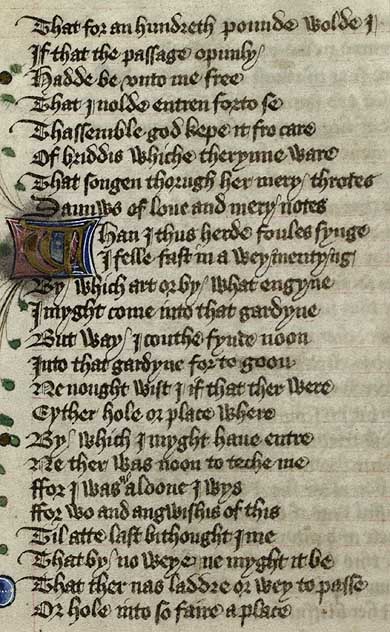 That for an hundreth pounde wolde I
If that the passage opunly
Hadde be vnto me free
That I nolde entren forto se
Thassemble god kepe it fro care
Of briddis whiche therynne ware
That songen thorugh her mery throtes
Daunws of loue and mery notes
Whan I thus herde foules synge
I felle fast in a weymentyng
By which art or by what engyne
I myght come into that gardyne
But way I couthe fynde noon
Into that gardyne for to goon
Ne nought wist I if that ther were
Eyther hole or place where
By which I myght haue entre
Ne ther was noon to teche me
ffor I was al aloone I wys
ffor wo and angwishis of this
Til atte last bithought I me
That by no weye ne myght it be
That ther nas laddre or wey to passe
Or hole into so faire a place